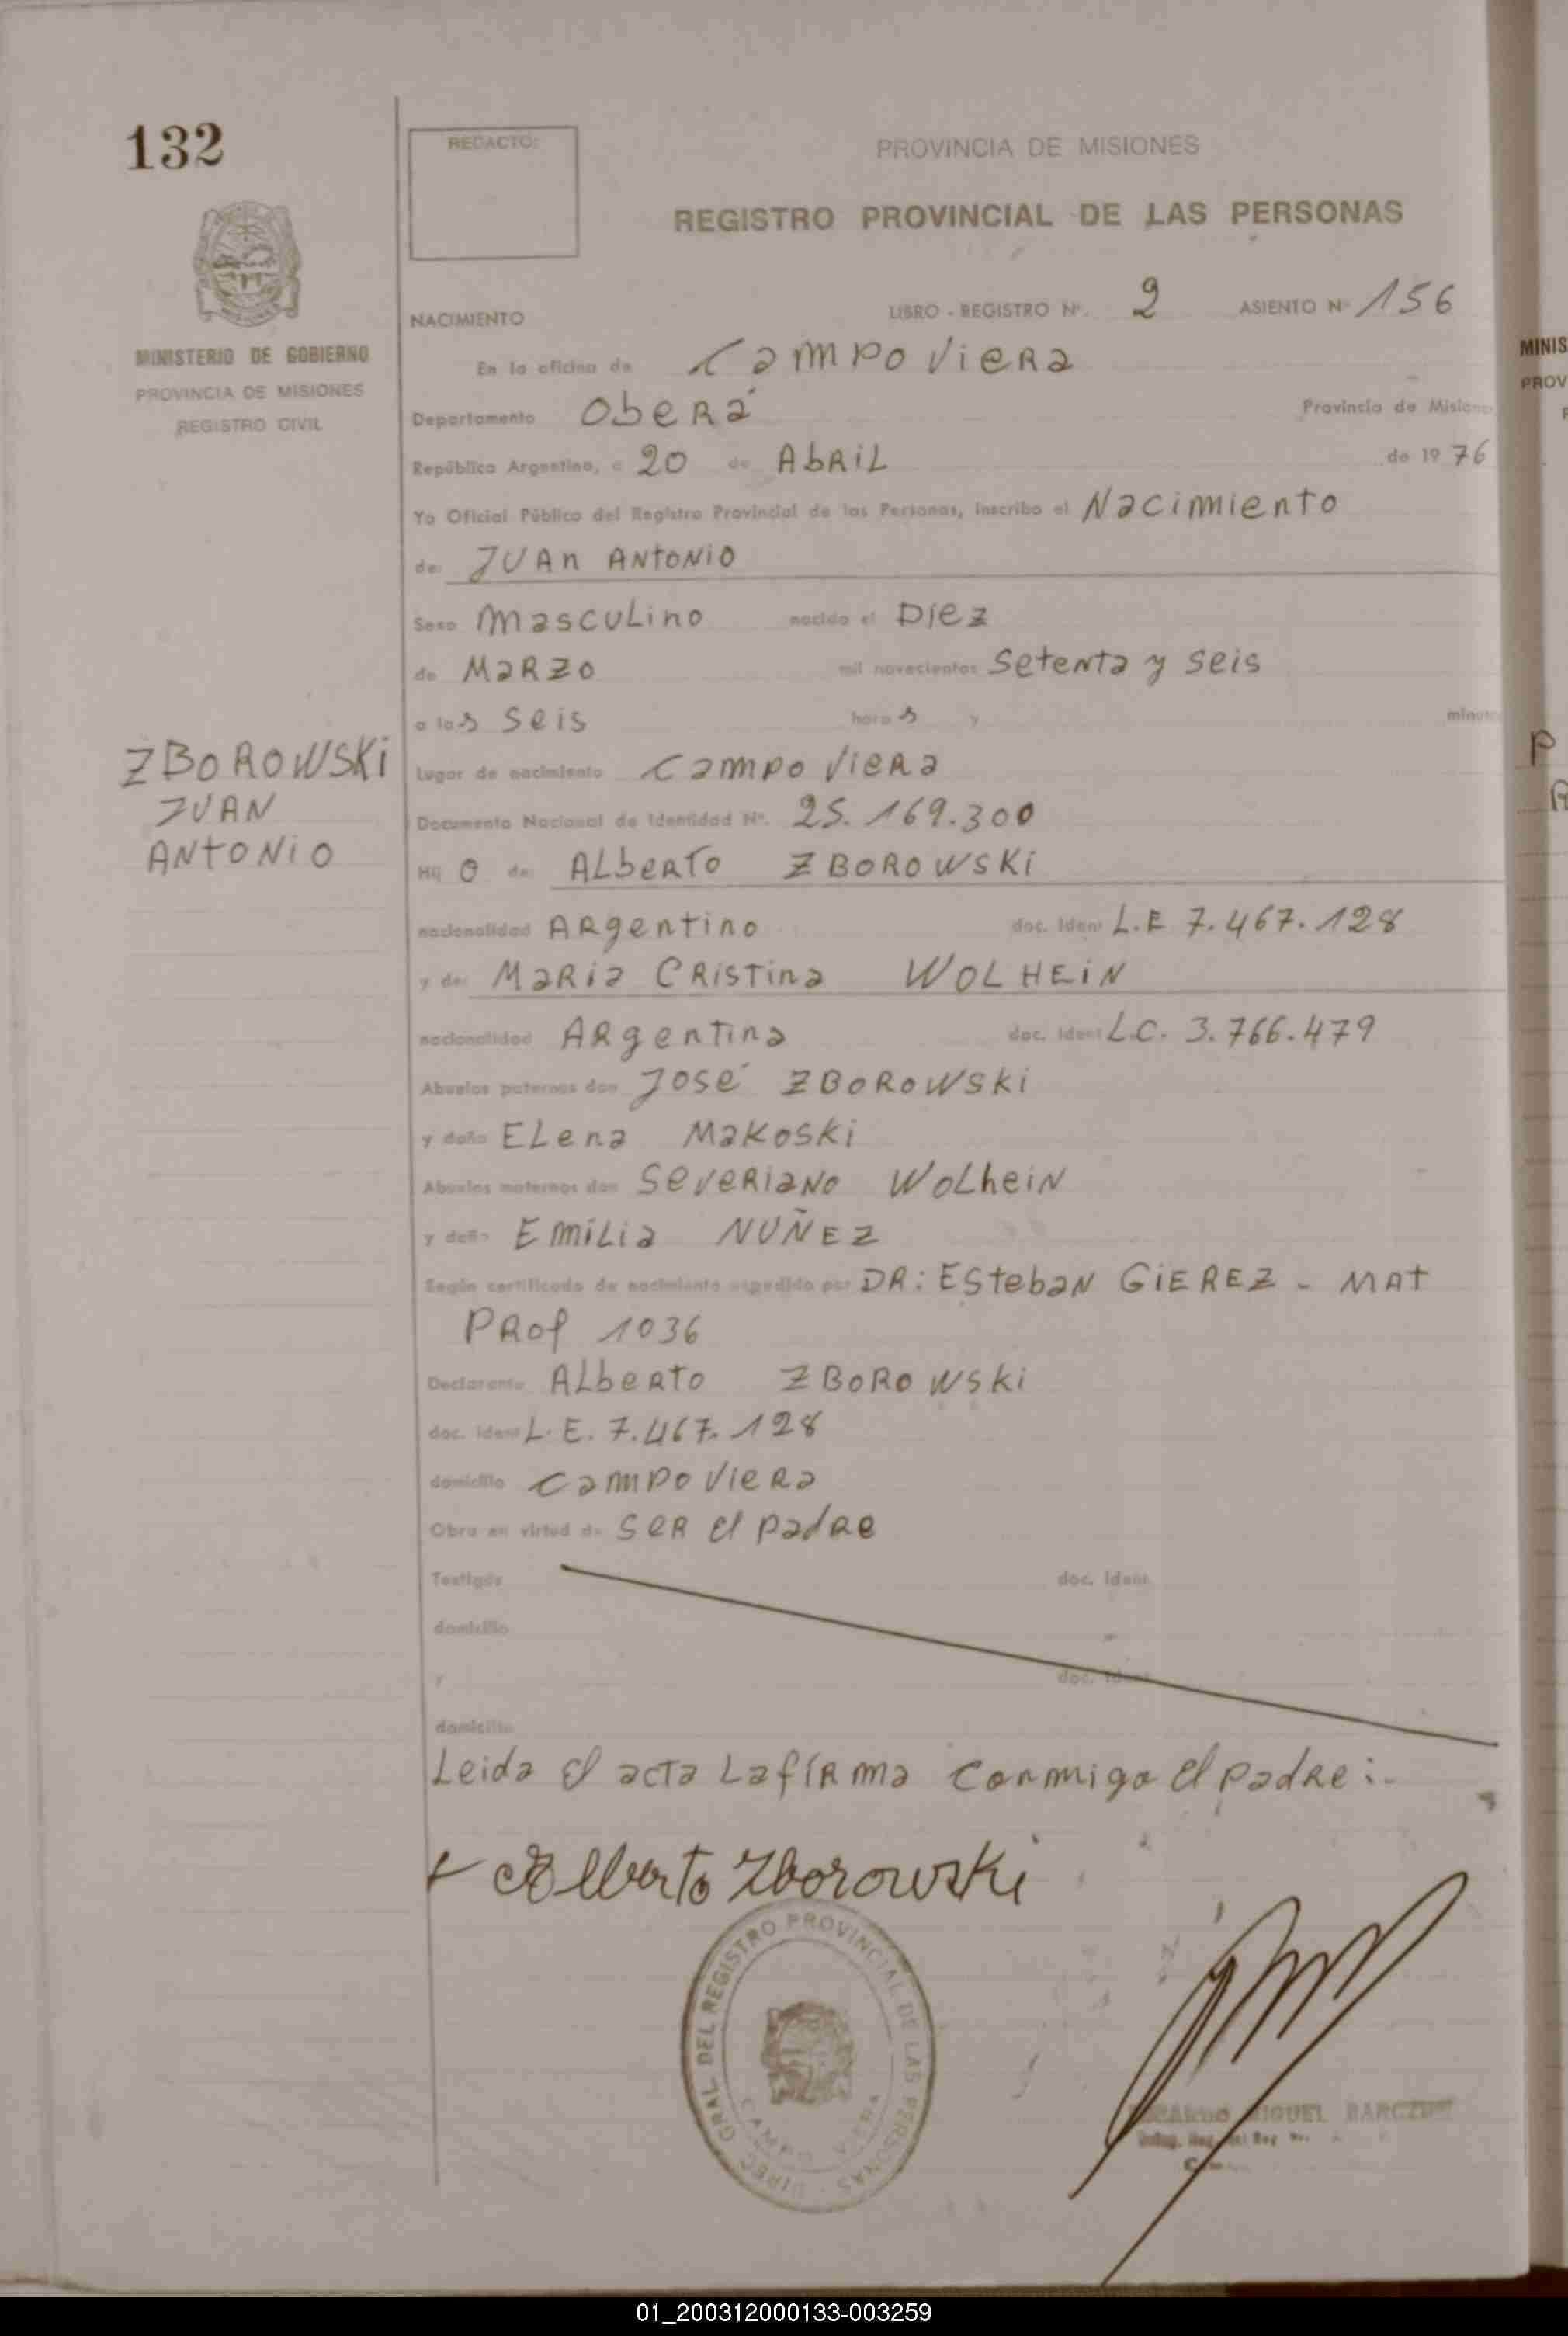 132
REDACTO:
PROVINCIA DE MISIONES
REGISTRO PROVINCIAL DE LAS PERSONAS
MINISTERIO DE GOBIERNO
PROVINCIA DE MISIONES
REGISTRO CIVIL
NACIMIENTO LIBRO - REGISTRO Nº. 2 ASIENTO Nº 156
En la oficina de Campo Viera
Departamento Oberá Provincia de Misiones
República Argentina, a 20 de Abril de 1976
Yo Oficial Público del Registro Provincial de las Personas, inscribo el Nacimiento
de JUAN ANTONIO
Sexo Masculino nacido el Diez
de Marzo mil novecientos Setenta y seis
a las seis horas y minutos
ZBOROWSKI
JUAN
ANTONIO
Lugar de nacimiento Campo Viera
Documento Nacional de Identidad Nº. 25.169.300
Hijo de ALberto ZBOROWSKI
nacionalidad Argentino doc. Ident L.E 7.467.128
y de Maria Cristina WOLHEIN
nacionalidad Argentina doc. Ident L.C. 3.766.479
Abuelos paternos don José ZBOROWSKI
y doña ELena Makoski
Abuelos maternos don Severiano WOLhein
y doña Emilia NUÑEZ
Según certificado de nacimiento expedido por DR: Esteban GIEREZ - MAT
PROf 1036
Declarante ALberto ZBOROWSKI
doc. Ident L.E. 7.467.128
domicilio Campo Viera
Obra en virtud de ser el padre
Testigos doc. Ident.
domicilio
y doc. Ident
domicilio
Leida el acta La firma conmigo el padre:-
Alberto Zborowski
DIREC. GRAL. DEL REGISTRO PROVINCIAL DE LAS PERSONAS
CAMPO VIERA
MIGUEL
MINIS
PROV
P
R
01_200312000133-003259